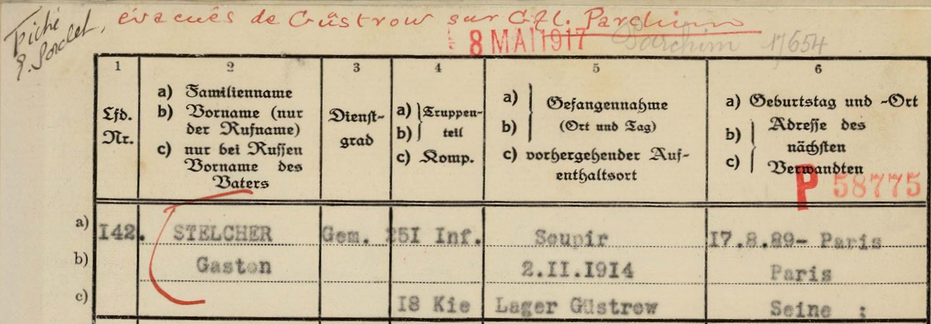 évacués de Güstrow sur Gfl. Parchim
Fiché
8 MAI 1917 Parchim 1/654
1 2 3 4 5 6
Lfd. Nr.
a) Familienname
b) Vorname (nur der Rufname)
c) nur bei Russen Vorname des Vaters
Dienstgrad
a) b) Truppenteil
c) Komp.
a) b) Gefangennahme (Ort und Tag)
c) vorhergehender Aufenthaltsort
a) Geburtstag und -Ort
b) c) Adresse des nächsten Verwandten
P 58775
a) 142. STELCHER Gem. 251 Inf. Soupir 17.8.89- Paris
b) Gaston 2.II.1914 Paris
c) I8 Kie Lager Güstrow Seine ;